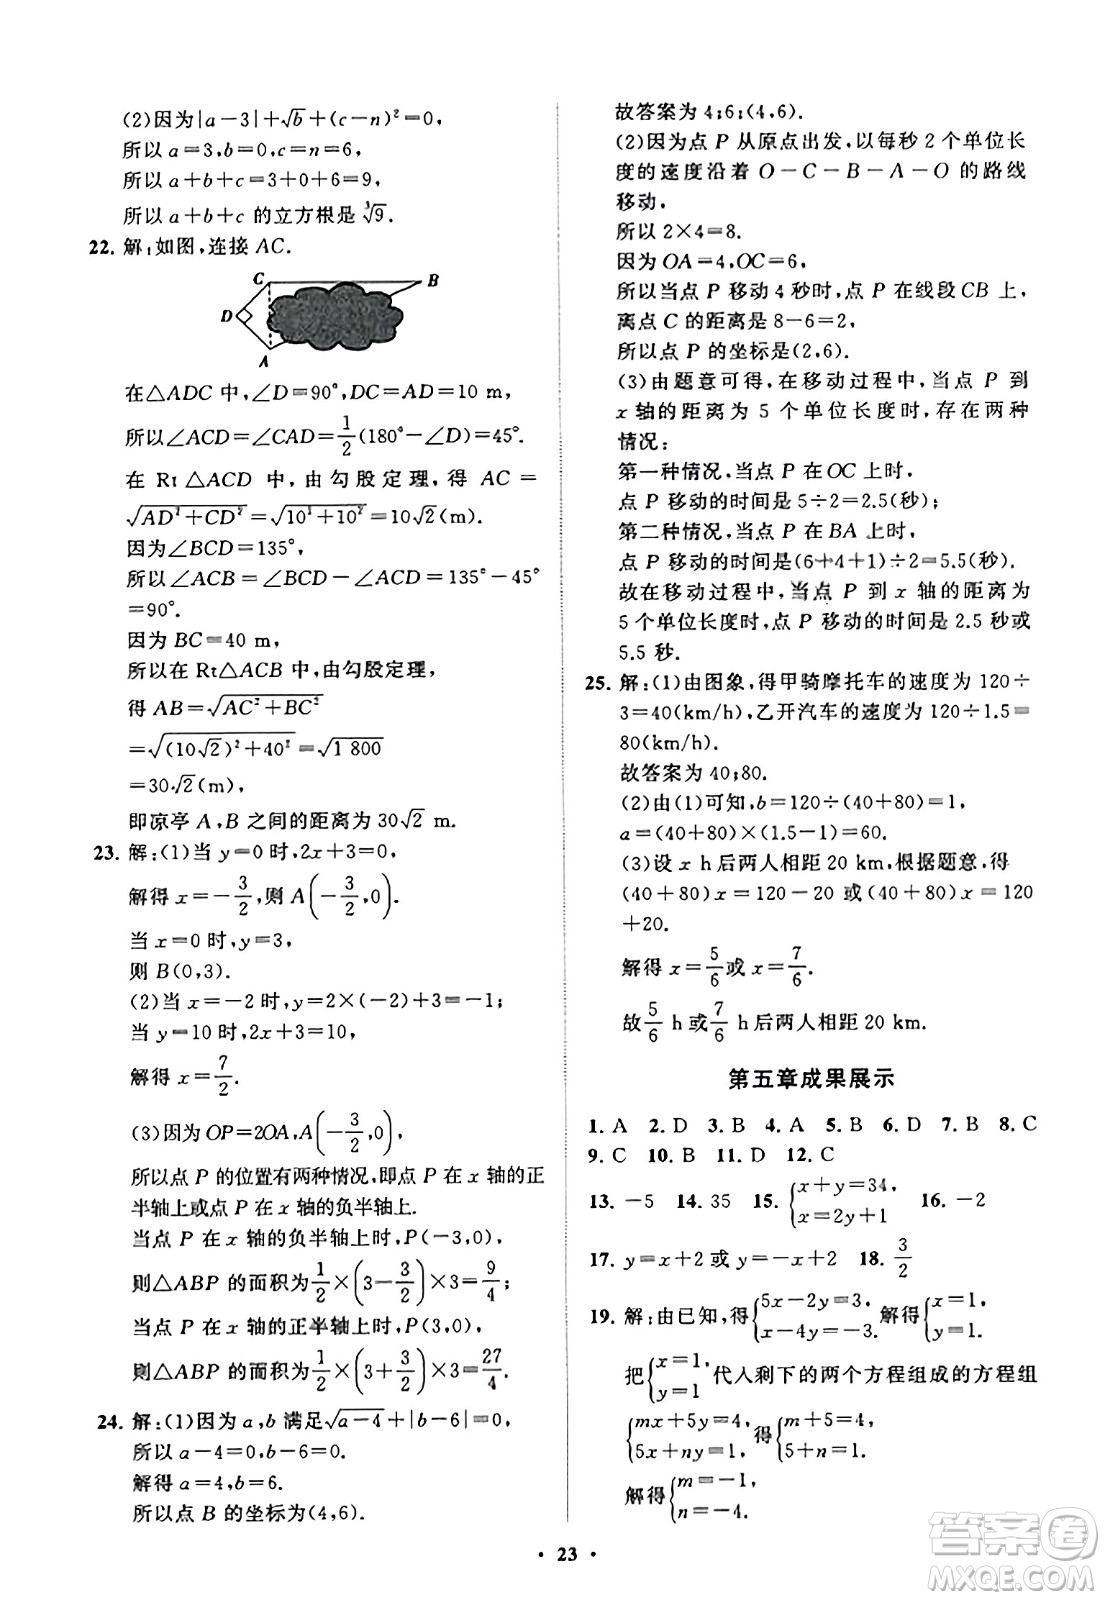 (2)因为|a-3|+√b+(c-n)²=0,
所以 a=3,b=0,c=n=6,
所以 a+b+c=3+0+6=9,
所以 a+b+c 的立方根是 ∛9.
22. 解:如图,连接 AC.
C B
D
A
在△ADC 中,∠D=90°,DC=AD=10 m,
所以∠ACD=∠CAD=1/2(180°-∠D)=45°.
在 Rt △ACD 中,由勾股定理,得 AC=
√(AD²+CD²)=√(10²+10²)=10√2(m).
因为∠BCD=135°,
所以∠ACB=∠BCD-∠ACD=135°-45°
=90°.
因为 BC=40 m,
所以在 Rt△ACB 中,由勾股定理,
得 AB=√(AC²+BC²)
=√((10√2)²+40²)=√(1 800)
=30√2(m),
即凉亭 A,B 之间的距离为 30√2 m.
23. 解:(1)当 y=0 时,2x+3=0,
解得 x=-3/2,则 A(-3/2,0).
当 x=0 时,y=3,
则 B(0,3).
(2)当 x=-2 时,y=2×(-2)+3=-1;
当 y=10 时,2x+3=10,
解得 x=7/2.
(3)因为 OP=2OA,A(-3/2,0),
所以点 P 的位置有两种情况,即点 P 在 x 轴的正
半轴上或点 P 在 x 轴的负半轴上.
当点 P 在 x 轴的负半轴上时,P(-3,0),
则△ABP 的面积为1/2×(3-3/2)×3=9/4;
当点 P 在 x 轴的正半轴上时,P(3,0),
则△ABP 的面积为1/2×(3+3/2)×3=27/4.
24. 解:(1)因为 a,b 满足√(a-4)+|b-6|=0,
所以 a-4=0,b-6=0.
解得 a=4,b=6.
所以点 B 的坐标为(4,6).
故答案为 4;6;(4,6).
(2)因为点 P 从原点出发,以每秒 2 个单位长
度的速度沿着 O-C-B-A-O 的路线
移动,
所以 2×4=8.
因为 OA=4,OC=6,
所以当点 P 移动 4 秒时,点 P 在线段 CB 上,
离点 C 的距离是 8-6=2,
所以点 P 的坐标是(2,6).
(3)由题意可得,在移动过程中,当点 P 到
x 轴的距离为 5 个单位长度时,存在两种
情况:
第一种情况,当点 P 在 OC 上时,
点 P 移动的时间是 5÷2=2.5(秒);
第二种情况,当点 P 在 BA 上时,
点 P 移动的时间是(6+4+1)÷2=5.5(秒).
故在移动过程中,当点 P 到 x 轴的距离为
5 个单位长度时,点 P 移动的时间是 2.5 秒或
5.5 秒.
25. 解:(1)由图象,得甲骑摩托车的速度为 120÷
3=40(km/h),乙开汽车的速度为 120÷1.5=
80(km/h).
故答案为 40;80.
(2)由(1)可知,b=120÷(40+80)=1,
a=(40+80)×(1.5-1)=60.
(3)设 x h 后两人相距 20 km,根据题意,得
(40+80)x=120-20 或(40+80)x=120
+20.
解得 x=5/6或 x=7/6.
故5/6 h 或7/6 h 后两人相距 20 km.
第五章成果展示
1. A 2. D 3. B 4. A 5. B 6. D 7. B 8. C
9. C 10. B 11. D 12. C
13. -5 14. 35 15. {x+y=34, x=2y+1 16. -2
17. y=x+2 或 y=-x+2 18. 3/2
19. 解:由已知,得{5x-2y=3, x-4y=-3. 解得{x=1, y=1.
把{x=1, y=1代入剩下的两个方程组成的方程组
{mx+5y=4, 5x+ny=1, 得{m+5=4, 5+n=1.
解得{m=-1, n=-4.
• 23 •
答案卷
MXQE.COM